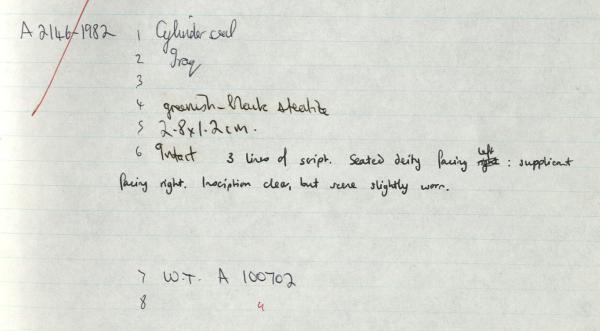 A 2146-1982 1 Cylinder seal
2 Iraq
3
4 greenish-black steatite
5 2.8 x 1.2 cm.
6 Intact 3 lines of script. Seated deity facing left right : supplicant
facing right. Insciption clear, but scene slightly worn.
7 W.T. A 100702
8 4